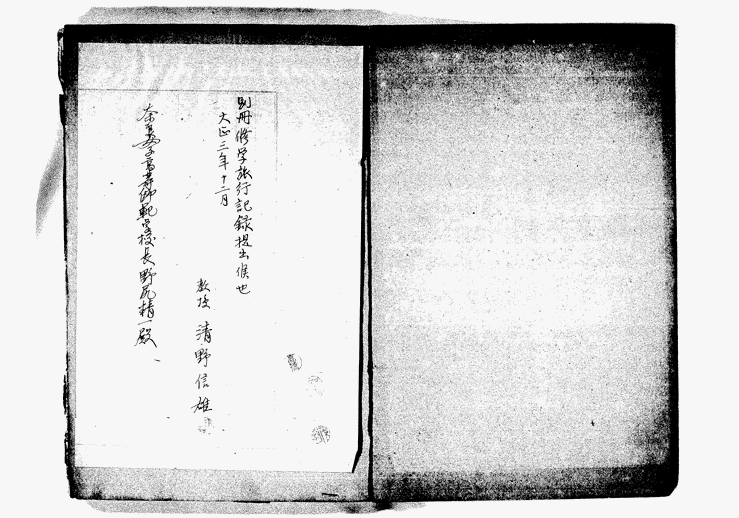 別冊修学旅行記録提出候也
大正三年十二月
教授 清野信雄
奈良女子高等師範学校長野尻精一殿